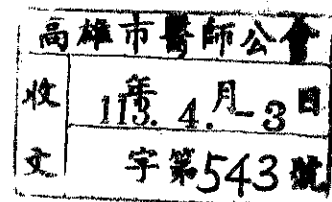 高雄市醫師公會
收文
113年4月-3日
字第543號